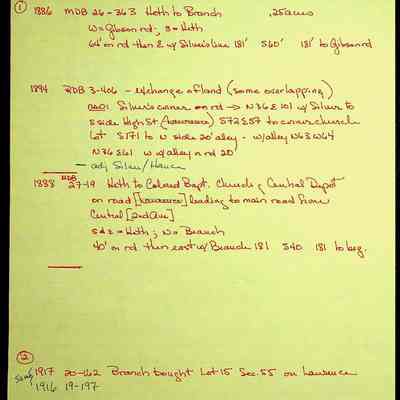 ① 1886 MDB 26-363 Hoth to Branch .25 acres
W = Gibson rd; S = Hoth
64' on rd then E w/ Silver's line 181' S60' 181' to Gibson rd
1894 RDB 3-406 - exchange of land (some overlapping)
Silver's corner on rd → N36E101 w/ Silver to
S side High St. (Lawrence) S72E57 to corner church
lot S171 to N side 20' alley - w/alley N63W64
N36E61 w/ alley n rd 20'
- adj Silver/Hance
1888 MDB 27-19 Hoth to Colored Bapt. Church @ Central Depot
on road [Lawrence] leading to main road from
Central [2nd Ave]
S & E = Hoth; N = Branch
40' on rd then east w/ Branch 181 S40 181 to beg.
② 1917 20-162 Branch bought Lot 15 Sec. 55 on Lawrence
1916 19-197